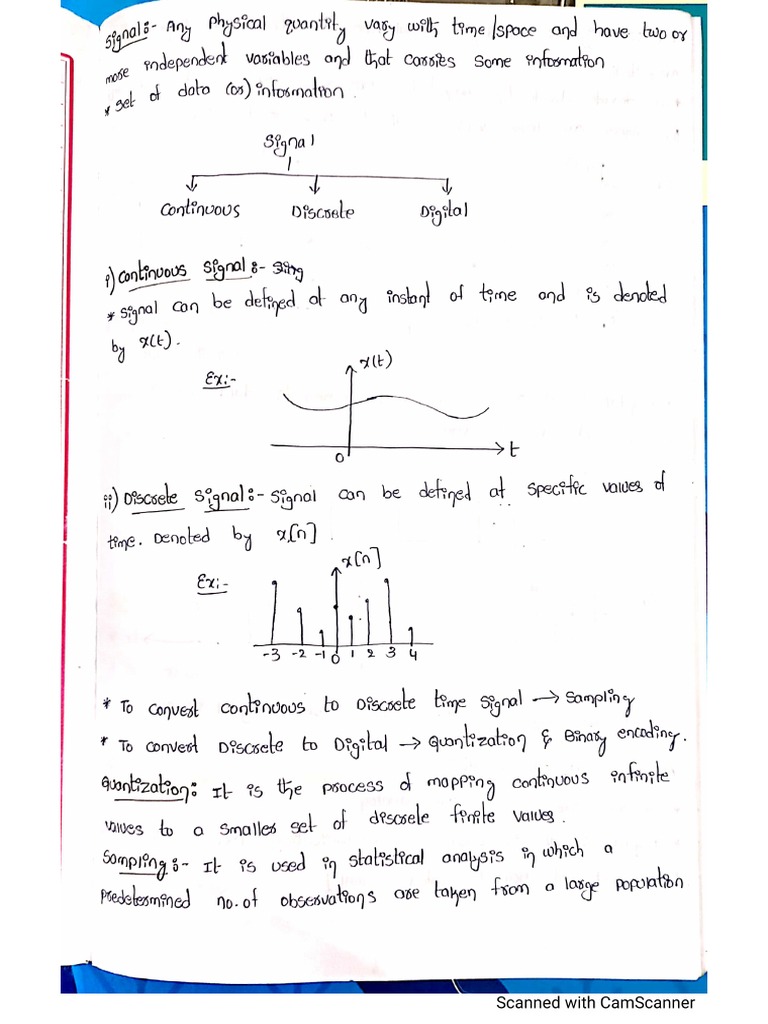 Signal:- Any physical quantity vary with time/space and have two or
more independent variables and that carries some information
* set of data (or) information.
Signal
Continuous Discrete Digital
i) Continuous Signal:-
* Signal can be defined at any instant of time and is denoted
by x(t).
Ex:-
x(t)
0
t
ii) Discrete Signal:- Signal can be defined at specific values of
time. Denoted by x[n]
Ex:-
x[n]
-3 -2 -1 0 1 2 3 4
* To convert continuous to Discrete time signal → Sampling
* To convert Discrete to Digital → Quantization & Binary encoding.
Quantization: It is the process of mapping continuous infinite
values to a smaller set of discrete finite values.
Sampling:- It is used in statistical analysis in which a
predetermined no. of observations are taken from a large population
Scanned with CamScanner